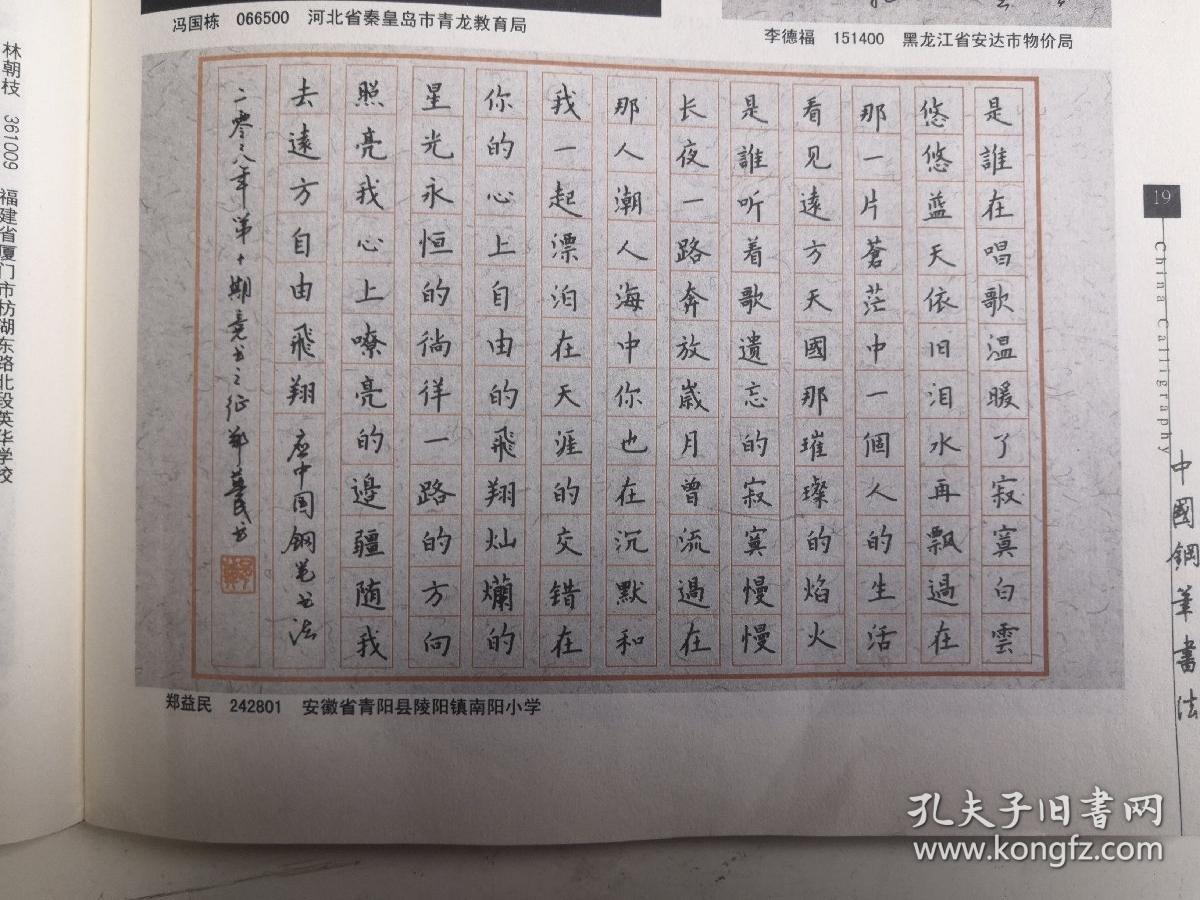 冯国栋 066500 河北省秦皇岛市青龙教育局
李德福 151400 黑龙江省安达市物价局
林朝枝 361009 福建省厦门市枋湖东路北段英华学校
是誰在唱歌温暖了寂寞白雲
悠悠蓝天依旧泪水再飘過在
那一片蒼茫中一個人的生活
看见遠方天國那璀璨的焰火
是誰听着歌遗忘的寂寞慢慢
长夜一路奔放歲月曾流過在
那人潮人海中你也在沉默和
我一起漂泊在天涯的交错在
你的心上自由的飛翔灿爛的
星光永恒的徜徉一路的方向
照亮我心上嘹亮的邊疆随我
去遠方自由飛翔 应中国钢笔书法
二零零八年第十期竞书之征郑益民书
郑益民 242801 安徽省青阳县陵阳镇南阳小学
19
China Calligraphy
中國鋼筆書法
孔夫子旧書网
www.kongfz.com